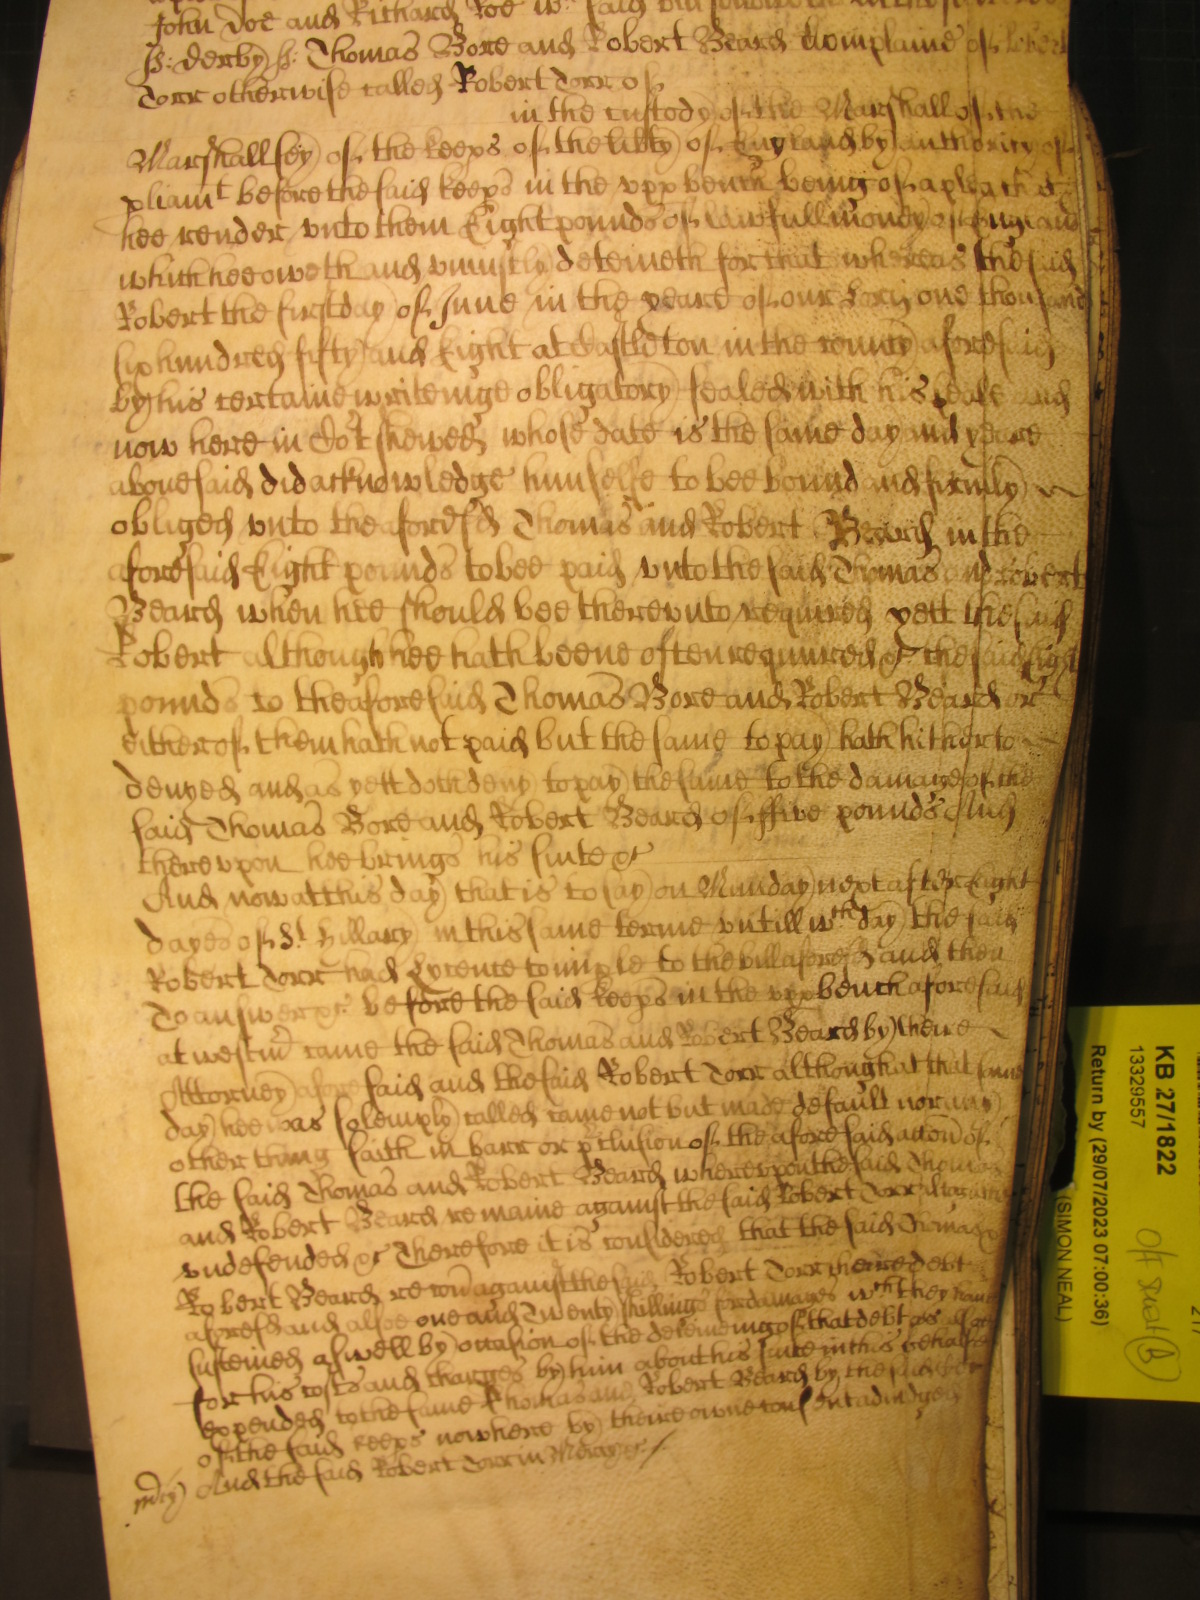 John Doe and Richard Roe wch said bill
ss: derby ss: Thomas Bore and Robert Beard Complaine of Robert
Torr otherwise called Robert Torr of
in the custody of the Marshall of the
Marshallsey of the keeps of the libty of England by authority of
pliamt before the said keeps in the vpp bench being of a plea that
hee render vnto them Eight pounds of lawfull money of England
which hee oweth and vniustly deteineth for that whereas the said
Robert the first day of June in the yeare of our Lord one thousand
six hundred fifty and Eight at Castleton in the county aforesaid
by his certaine writeinge obligatory sealed with his seale and
now here in Cot shewed whose date is the same day and yeare
abouesaid did acknowledge himselfe to bee bound and firmly
obliged vnto the aforesd Thomas and Robert Beard in the
aforesaid Eight pounds to bee paid vnto the said Thomas and Robert
Beard when hee should bee therevnto required yett the said
Robert although hee hath beene often required &c the said Eight
pounds to the aforesaid Thomas Bore and Robert Beard or
either of them hath not paid but the same to pay hath hitherto
denyed and as yett doth deny to pay the same to the damage of the
said Thomas Bore and Robert Beard of ffive pounds And
therevpon hee brings his suite &c
And now at this day that is to say on Munday next after Eight
dayes of St Hillary in this same terme vntill wch day the said
Robert Torr had Lycence to imple to the bill aforesd and then
To answer &c before the said keeps in the vpp bench aforesaid
at westmr came the said Thomas and Robert Beard by theire
Attorney aforesaid and the said Robert Torr although at that same
day hee was solemply called came not but made default nor any
other thing saith in barr or pclusion of the aforesaid accon of
the said Thomas and Robert Beard wherevpon the said Thomas
and Robert Beard remaine against the said Robert Torr
vndefended &c Therefore it is considered that the said Thomas &
Robert Beard recou against the said Robert Torr theire debt
aforesd and alsoe one and Twenty shillings for damages wch they haue
susteined aswell by occasion of the deteineing of that debt as
for his costs and charges by him about his suite in this behalfe
expended to the same Thomas and Robert Beard by the
of the said keeps now here by theire owne consent adiudged
mcy And the said Robert Torr in Mercy &c
KB 27/1822
13329557
Return by (29/07/2023 07:00:36)
(SIMON NEAL)